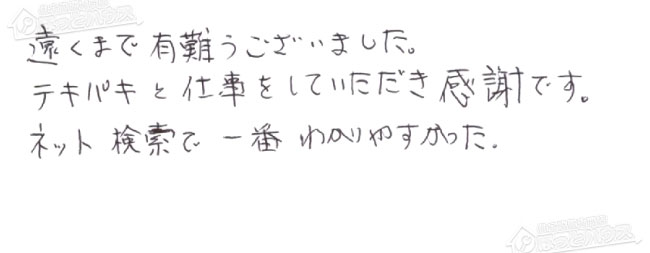 遠くまで有難うございました。
テキパキと仕事をしていただき感謝です。
ネット検索で一番わかりやすかった.